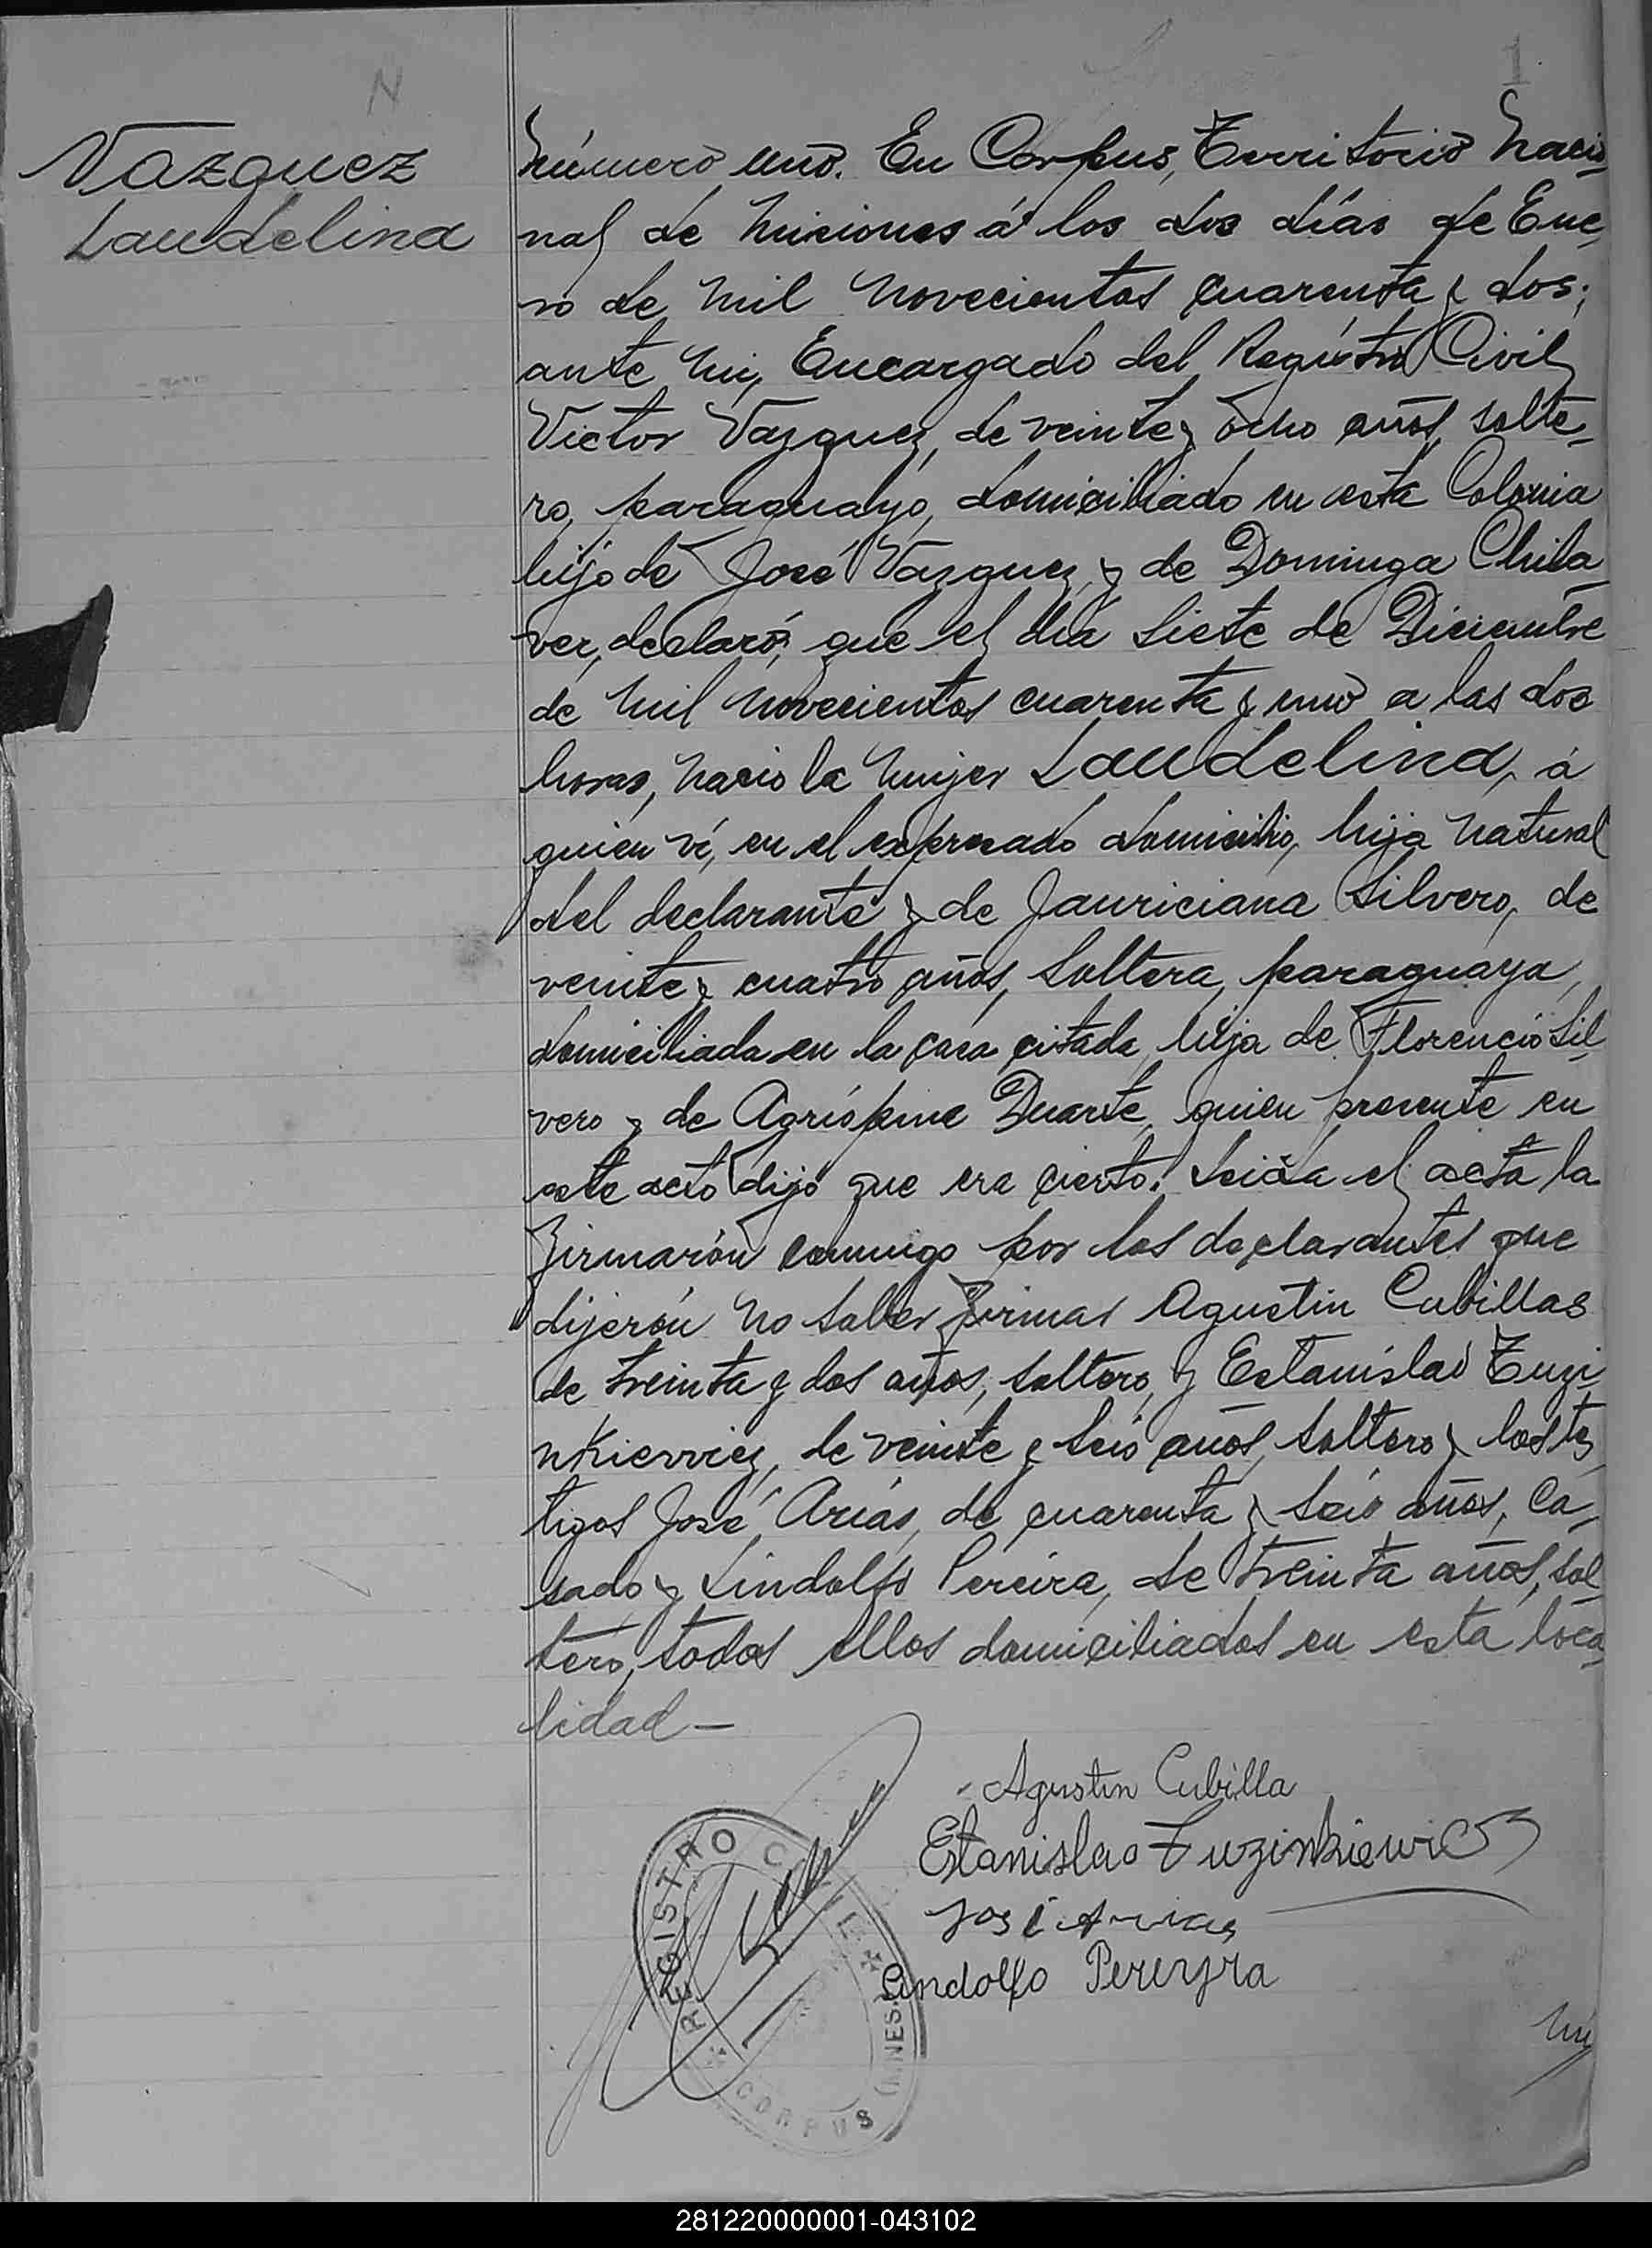 N
1
Vazquez
Laudelina
Número uno. En Corpus, Territorio Nacio-
nal de Misiones á los dos días de Ene-
ro de mil novecientos cuarenta y dos;
ante mi, Encargado del Registro Civil,
Victor Vazquez, de veinte y ocho años, solte-
ro, paraguayo, domiciliado en esta Colonia
hijo de José Vazquez y de Dominga Chila-
ver, declaró: que el día siete de Diciembre
de mil novecientos cuarenta y uno a las dos
horas, nacio la mujer Laudelina, á
quien ví, en el expresado domicilio, hija natural
del declarante y de Jauriciana Silvero, de
veinte y cuatro años, soltera, paraguaya,
domiciliada en la casa citada, hija de Florencio Sil-
vero y de Agrispina Duarte, quien presente en
este acto dijo que era cierto. Leida el acta la
firmarón conmigo por los declarantes que
dijerón no saber firmar Agustin Cubillas
de treinta y dos años, soltero, y Estanislao Tuzi-
nkievviez, de veinte y seis años, soltero y los tes-
tigos José Arias, de cuarenta y seis años, ca-
sado y Lindolfo Pereira, de treinta años, sol-
tero, todos ellos domiciliados en esta loca-
lidad —
Agustin Cubilla
Estanislao Tuzinkiewicz
José Arias
Lindolfo Pereyra
REGISTRO CIVIL
CORPUS (MNES.)
281220000001-043102